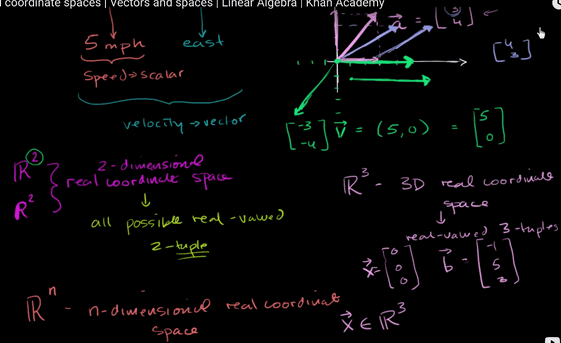 l coordinate spaces | Vectors and spaces | Linear Algebra | Khan Academy
5 mph east
speed → scalar
velocity → vector
a⃗ = [3 4]
[4 3]
[-3 -4]
v⃗ = (5,0) = [5 0]
ℝ² 2-dimensional
R² real coordinate space
↓
all possible real-valued
2-tuple
ℝ³ - 3D real coordinate
space
↓
real-valued 3-tuples
x⃗ = [0 0 0] b⃗ = [-1 5 3]
x⃗ ∈ ℝ³
ℝⁿ - n-dimensional real coordinat
space